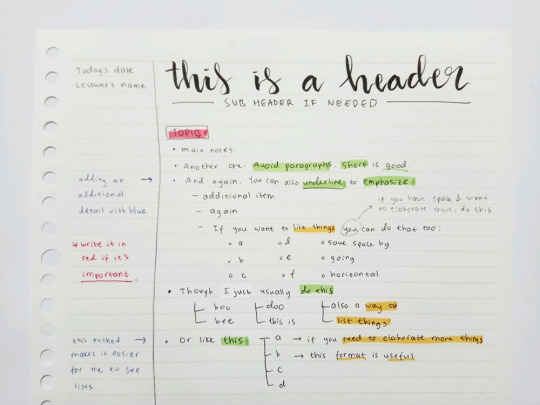 Today's date
Lecturer's name
this is a header
SUB HEADER IF NEEDED
TOPIC
• main notes
• Another one. Avoid paragraphs. Short is good.
• And again. You can also underline to emphasize
adding an →
additional
detail with blue
– additional item
– again
if you have space & want
to elaborate more, do this
– If you want to list things you can do that too:
* write it in
red if it's
important.
• a • d • save space by
• b • e • going
• c • f • horizontal
• Though I just usually do this
boo doo also a way to
bee this is list things
this method →
makes it easier
for me to see
lists
• Or like this a → if you need to elaborate more things
b → this format is useful
c
d